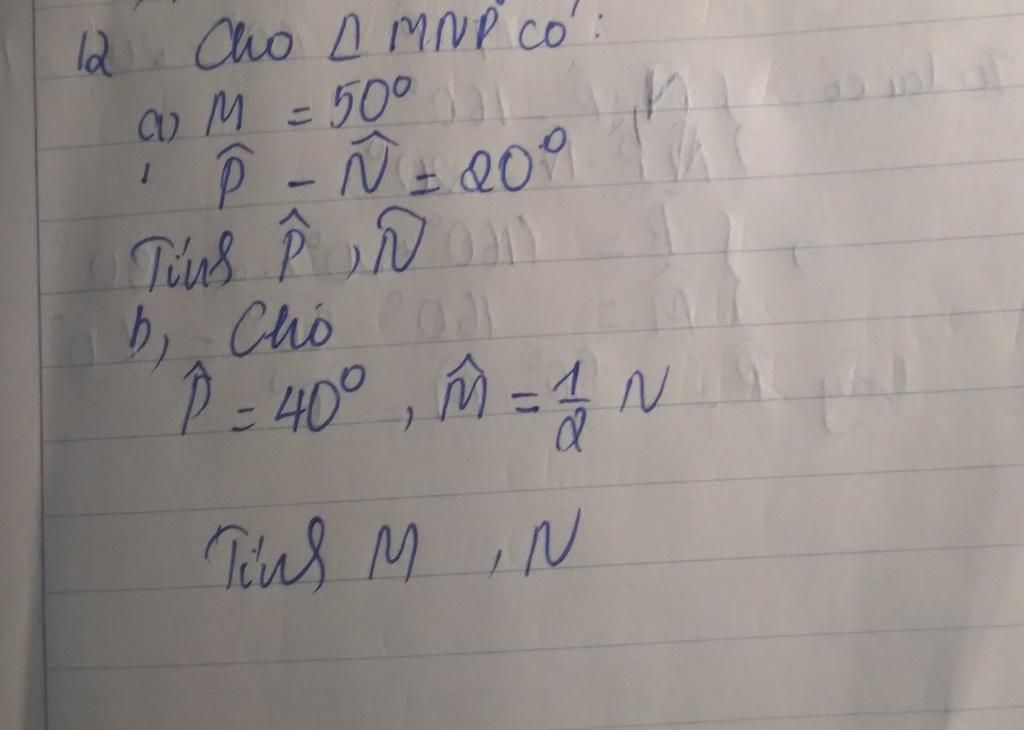 12 Cho Δ MNP có:
a) M = 50°
P̂ - N̂ = 20°
Tính P̂, N̂
b, Cho
P̂ = 40°, M̂ = 1/2 N
Tính M, N